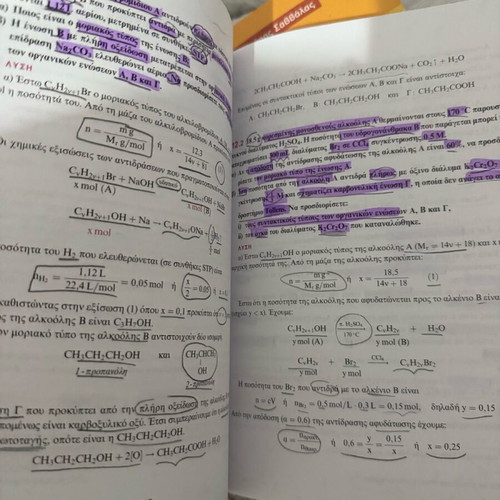 Σαββάλας
1,12 L αερίου, μετρημένα σε συνθήκες
α) Ποιος είναι ο μοριακός τύπος της ένωσης
β) Η ένωση Β με πλήρη οξείδωση μετατρέπεται στην
επίδραση Na₂CO₃ ελευθερώνει αέριο
των οργανικών ενώσεων Α, Β και Γ.
ΛΥΣΗ
α) Έστω CᵥH₂ᵥ₊₁Br ο μοριακός τύπος του αλκυλοβρωμιδίου
η ποσότητά του. Από τη μάζα του αλκυλοβρωμιδίου Α
n = m g / Mᵣ g/mol ή x = 12,3 / 14v + 81 (1)
Οι χημικές εξισώσεις των αντιδράσεων που
CᵥH₂ᵥ₊₁Br + NaOH
x mol (A)
CᵥH₂ᵥ₊₁OH + Na →
x mol
ποσότητα του H₂ που ελευθερώνεται (σε συνθήκες STP)
= 1,12 L / 22,4 L/mol = 0,05 mol ή x/2 = 0,05 ή
καθιστώντας στην εξίσωση (1) όπου x = 0,1 προκύπτει
ς της αλκοόλης Β είναι C₃H₇OH.
ν μοριακό τύπο της αλκοόλης Β αντιστοιχούν δύο
CH₃CH₂CH₂OH και CH₃CHCH₃
OH
1-προπανόλη 2-προπανόλη
Γ που προκύπτει από την πλήρη οξείδωση της
πομένως είναι καρβοξυλικό οξύ. Έτσι συμπεραίνουμε ότι
πρωτοταγής, οπότε είναι η CH₃CH₂CH₂OH.
CH₃CH₂CH₂OH + 2[O] → CH₃CH₂COOH + H₂O
2CH₃CH₂COOH + Na₂CO₃ → 2CH₃CH₂COONa + CO₂↑ + H₂O
Επομένως οι συντακτικοί τύποι των ενώσεων Α, Β και Γ είναι αντίστοιχα:
Α: CH₃CH₂CH₂Br, Β: CH₃CH₂CH₂OH και Γ: CH₃CH₂COOH
18,5 g κορεσμένης μονοσθενούς αλκοόλης Α θερμαίνονται στους 170 °C παρουσία
πυκνού διαλύματος H₂SO₄. Η ποσότητα του υδρογονάνθρακα Β που παράγεται μπορεί
300 mL διαλύματος Br₂ σε CCl₄ συγκέντρωσης 0,5 M.
α) Αν η απόδοση της αντίδρασης αφυδάτωσης της αλκοόλης Α είναι 60%, να προσδ
ρίσετε τον μοριακό τύπο της ένωσης Α.
β) Ίση ποσότητα από τη αλκοόλη Α αντιδρά πλήρως με όξινο διάλυμα K₂Cr₂O₇
συγκέντρωσης και σχηματίζει καρβονυλική ένωση Γ, η οποία δεν ανάγει το α
δραστήριο Tollens. Να προσδιορίσετε:
i) τους συντακτικούς τύπους των οργανικών ενώσεων Α, Β και Γ.
ii) τον όγκο του διαλύματος K₂Cr₂O₇ που καταναλώθηκε.
ΛΥΣΗ
α) Έστω CᵥH₂ᵥ₊₁OH ο μοριακός τύπος της αλκοόλης Α (Mᵣ = 14v + 18) και x m
ποσότητά της. Από τη μάζα της αλκοόλης προκύπτει:
n = m g / Mᵣ g/mol ή x = 18,5 / 14v + 18 (1)
Έστω ότι η ποσότητα της αλκοόλης που αφυδατώνεται προς το αλκένιο Β είναι
(y < x). Έχουμε:
CᵥH₂ᵥ₊₁OH π. H₂SO₄ 170 °C CᵥH₂ᵥ + H₂O
y mol (A) y mol (B)
CᵥH₂ᵥ + Br₂ CCl₄ → CᵥH₂ᵥBr₂
y mol y mol
Η ποσότητα του Br₂ που αντιδρά με το αλκένιο Β είναι
n = cV ή = 0,5 mol/L · 0,3 L = 0,15 mol, δηλαδή y = 0,15
Από την απόδοση (α = 0,6) της αντίδρασης αφυδάτωσης έχουμε:
α = ή 0,6 = y/x = 0,15/x ή x = 0,25